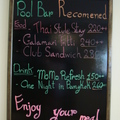 Pool Bar Recomened
Food - Thai Style Stay 220++
- Calamari Fill 240++
- Club Sandwich 22
Drink - MoMo Refresh 150++
- One Night in Bangkok 260++
Enjoy
your meal!